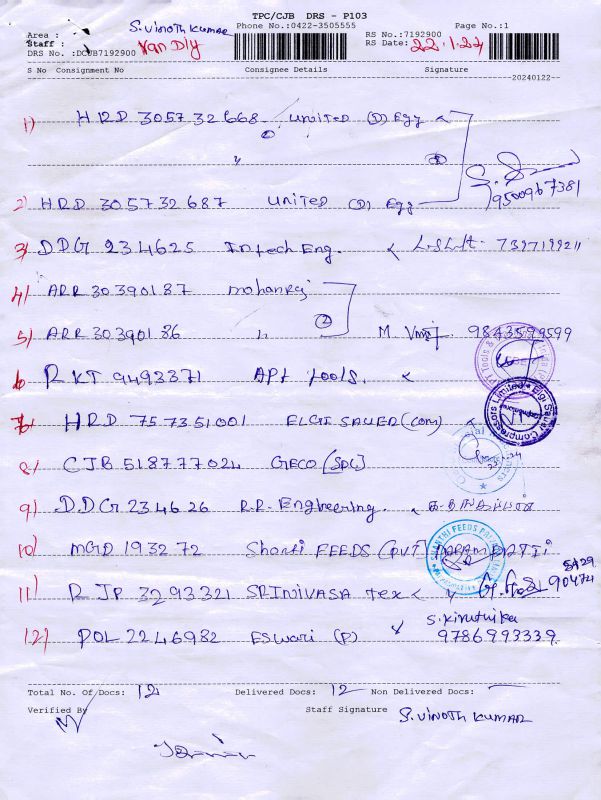 TPC/CJB DRS - P103
S. VINOTH KUMAR
Phone No.:0422-3505555
Page No.:1
Area :
RS No.:7192900
Staff :
Van Dly
RS Date: 22.1.24
DRS No. :DCJB7192900
S No Consignment No Consignee Details Signature
20240122
1) HRD 305732668 United (D) Egg
"
9500967381
2) HRD 305732687 United (D) Egg
3) DDG 234625 Intech Eng.
4) ARR 30390187 Mohanraj
(2)
5) ARR 30390186 " M. 9843599599
6) RKT 9493371 APT Tools.
7) HRD 757351001 ELGI SAUER (COM)
8) CJB 518777024 GECO (SDC)
9) D.D.G 234626 R.R. Engineering.
10) MGD 193272 Shanti FEEDS (PVT)
11) RJP 3293321 SRINIVASA Tex
12) POL 2246982 ESWARI (P)
S. Kiruthika
9786993339
Total No. Of Docs: 12 Delivered Docs: 12 Non Delivered Docs: —
Verified By
Staff Signature S. VINOTH KUMAR